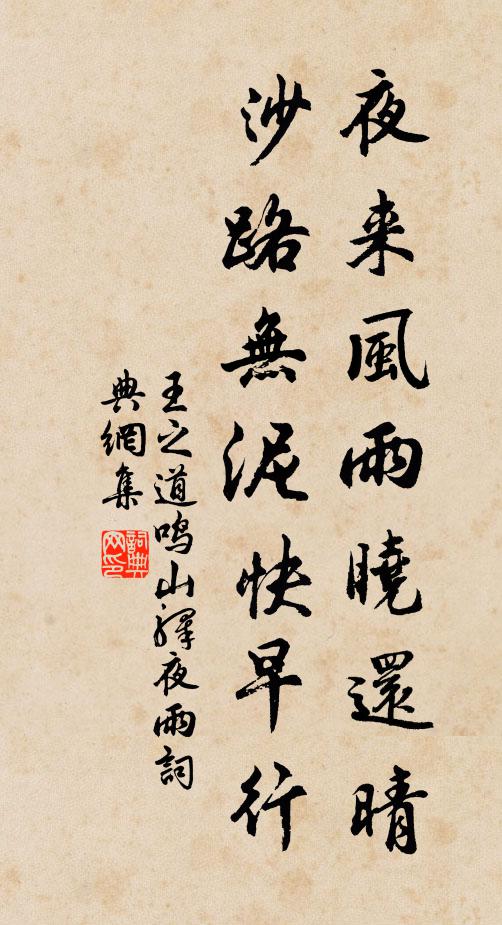 夜来風雨曉還晴
沙路無泥快早行
王之道鸣山驛夜雨詞
典網集
詞典
网印